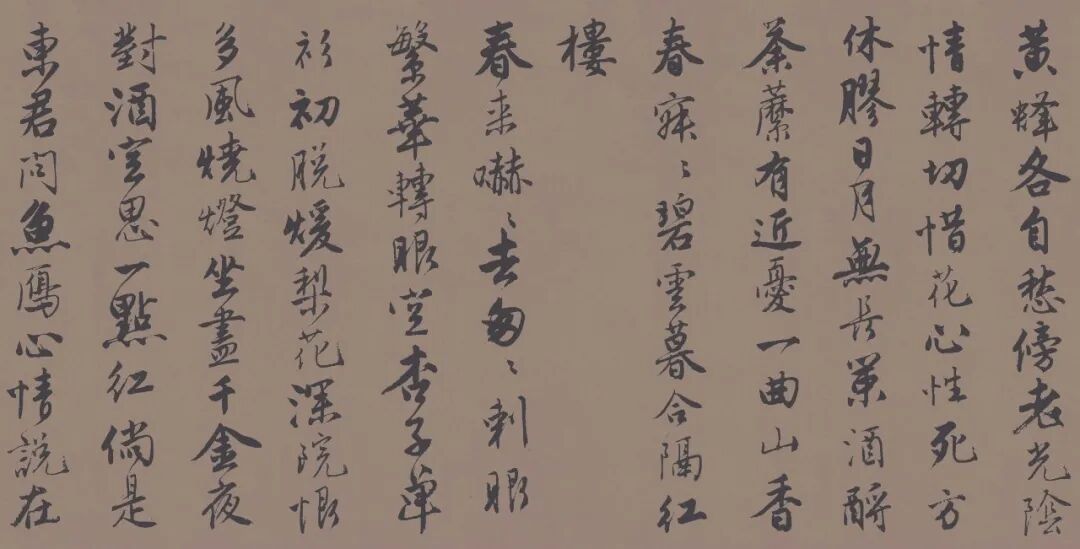 黄蜂各自愁傍老光陰
情轉切惜花心性死方
休膠日月無長策酒酹
荼蘼有近憂一曲山香
春寂〻碧雲暮合隔紅
樓
春来嚇〻去匆〻刺眼
繁華轉眼空杏子單
衫初脱煖梨花深院恨
多風燒燈坐盡千金夜
對酒空思一點紅倘是
東君問魚鴈心情說在